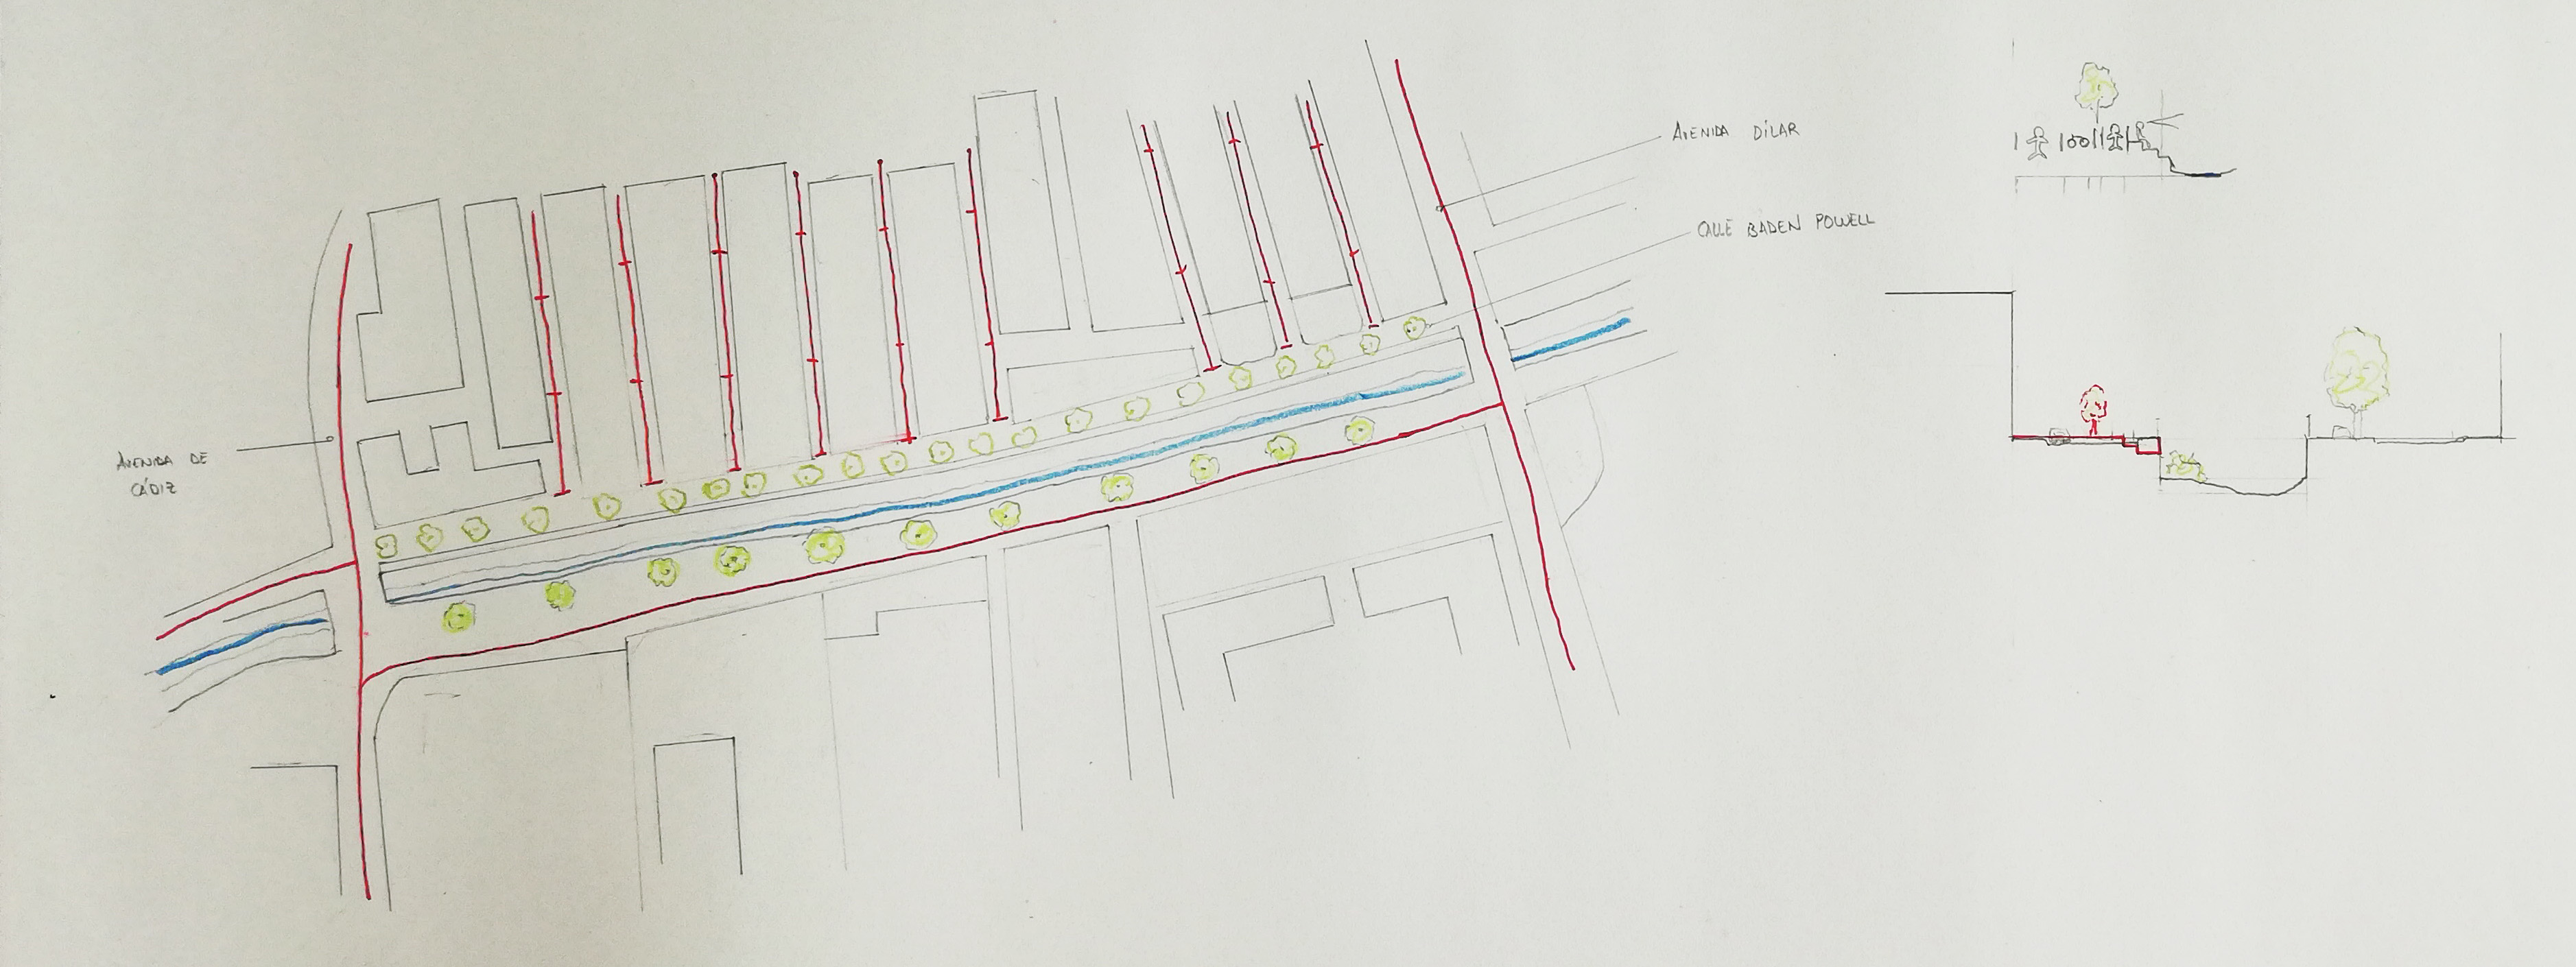 AVENIDA DÍLAR
CALLE BADEN POWELL
AVENIDA DE
CÁDIZ